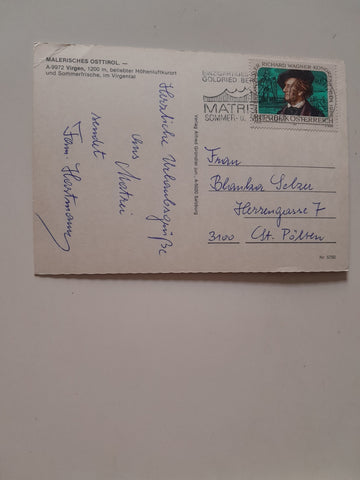 MALERISCHES OSTTIROL. —
A-9972 Virgen, 1200 m, beliebter Höhenluftkurort
und Sommerfrische, im Virgental
Herzliche Urlaubsgrüße
aus Matrei
sendet
Fam. Horstmann
GOLDRIED BERG
MATREI
SOMMER- u.
RICHARD WAGNER-KONGRESS
REPUBLIK ÖSTERREICH
Frau
Blanka Selzer
Herrengasse 7
3100 St. Pölten
Nr. 5792